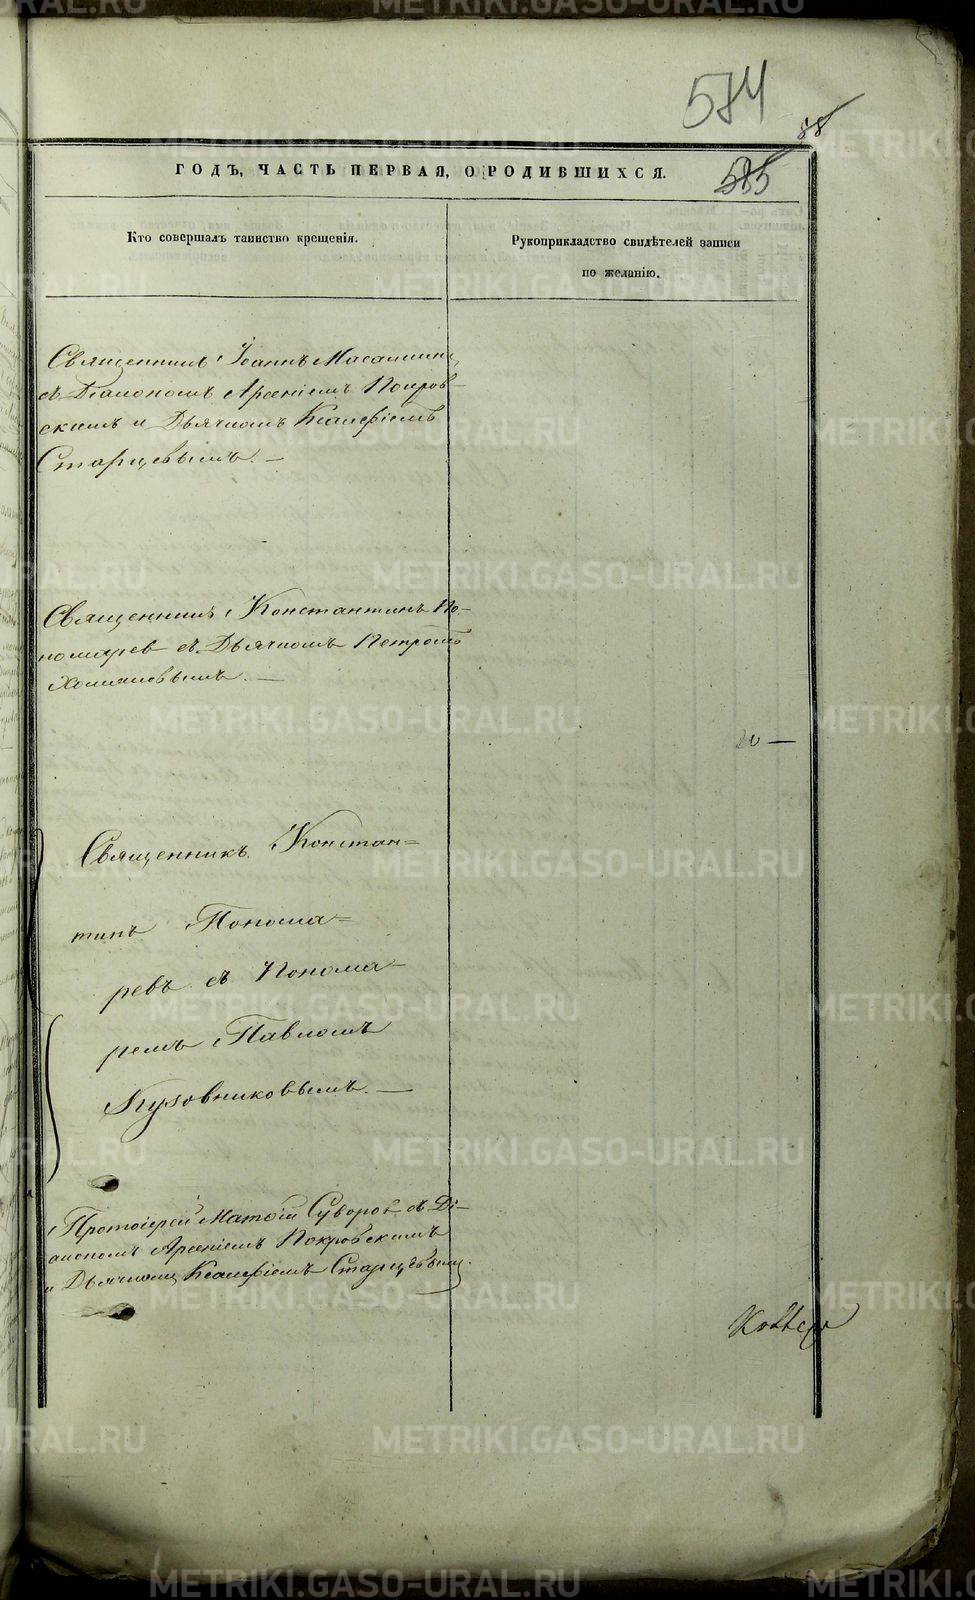 584
88
ГОДЪ, ЧАСТЬ ПЕРВАЯ, О РОДИВШИХСЯ.
585
Кто совершалъ таинство крещенія.
Рукоприкладство свидѣтелей записи
по желанію.
Священникъ Іоаннъ
съ Діакономъ Арсеніемъ Покров-
скимъ и Дьячкомъ Ксанфіемъ
Старцевымъ. —
Священникъ Константинъ По-
номарев съ Дьячкомъ Петромъ
Хомяковымъ. —
20 —
Священникъ Констан=
тинъ Понома=
ревъ съ Понома-
ремъ Павломъ
Кузовниковымъ. —
Протоіерей Матѳій Суворов съ Ді-
акономъ Арсеніемъ Покровскимъ
и Дьячкомъ Ксанфіемъ Старцевым.
METRIKI.GASO-URAL.RU